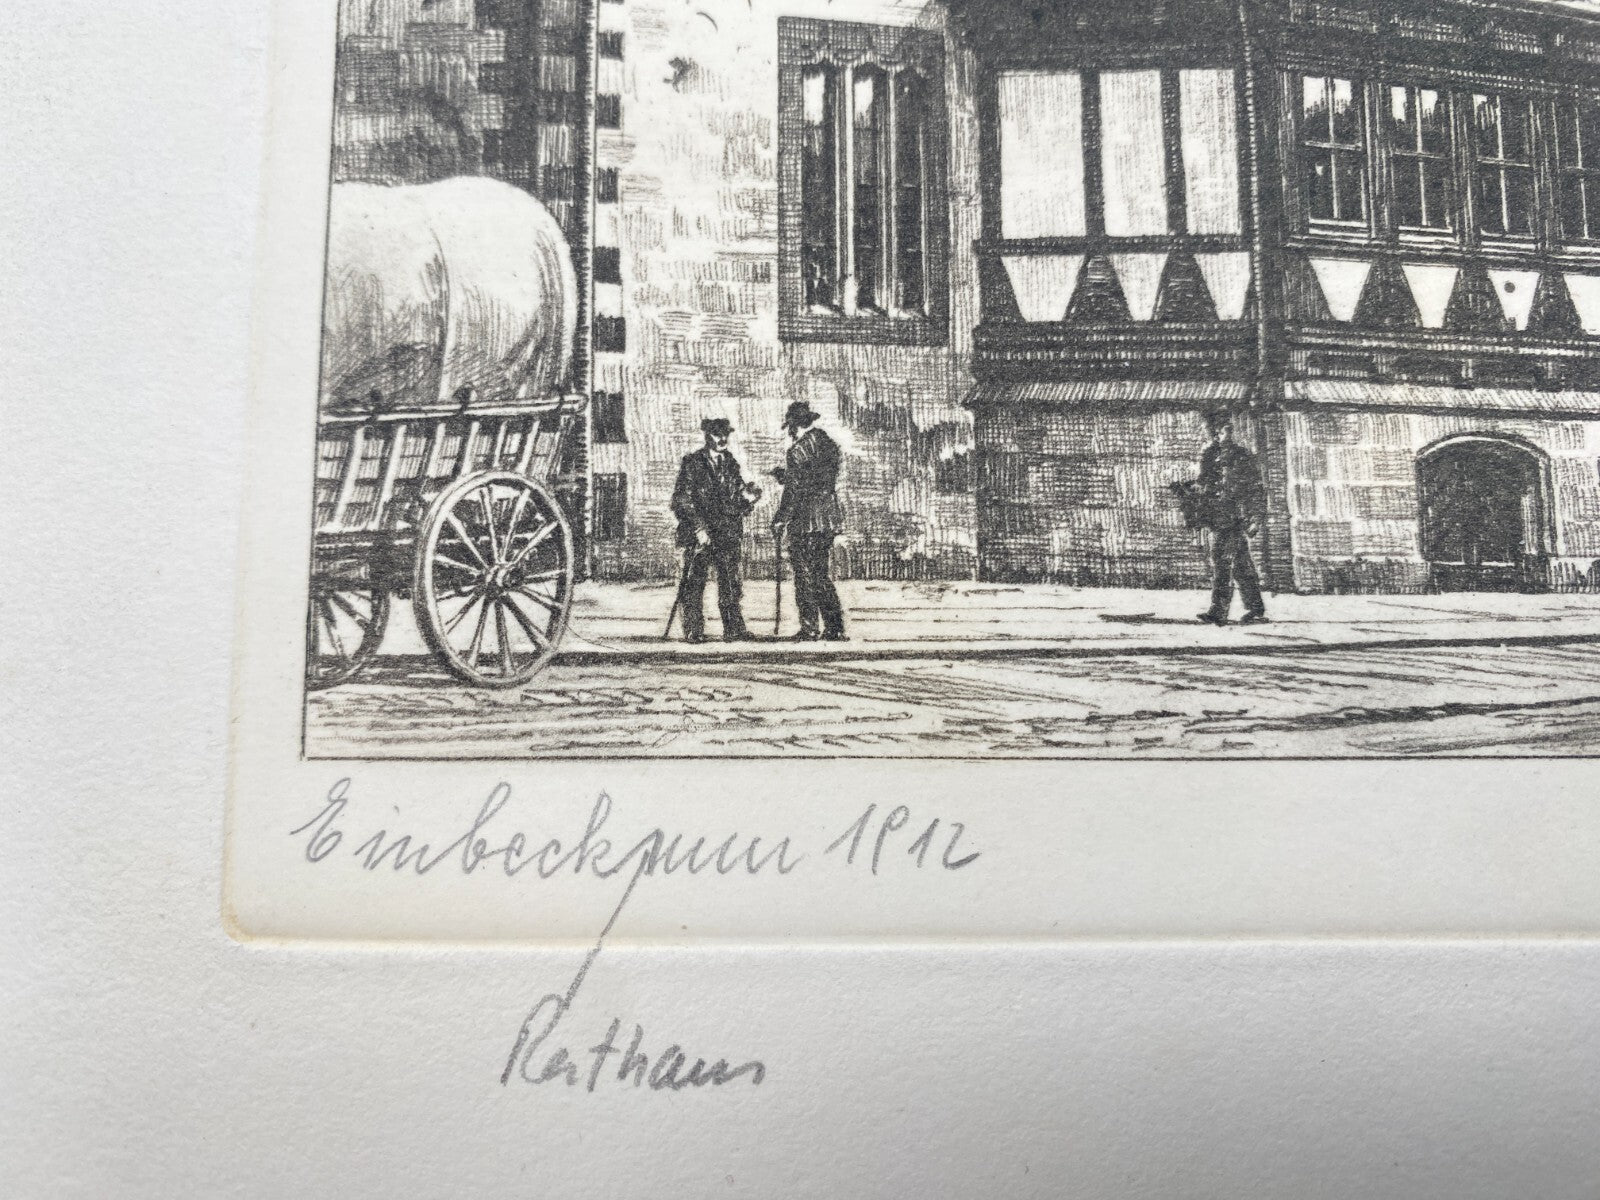 Einbeck 1912
Rathaus